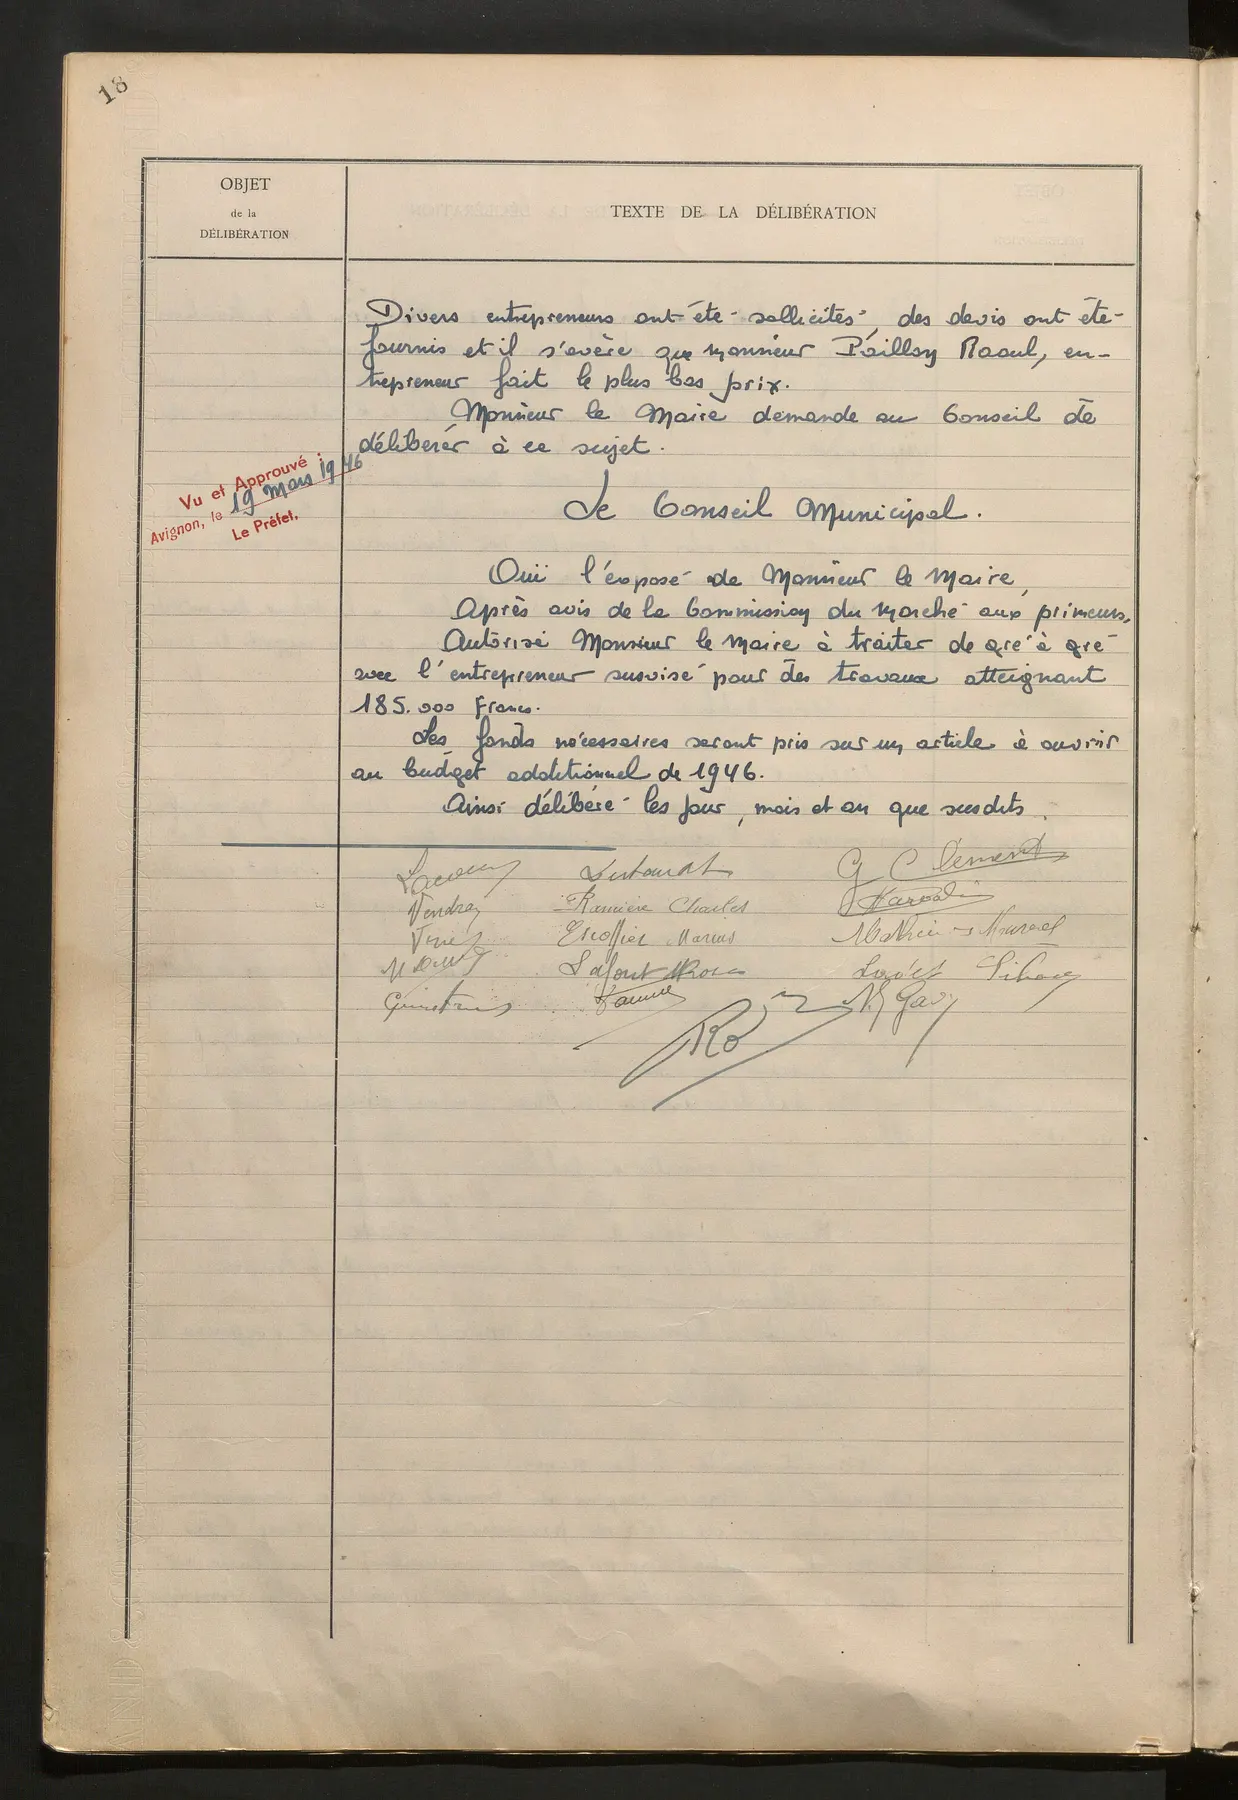 18
OBJET
de la
DÉLIBÉRATION
TEXTE DE LA DÉLIBÉRATION
Divers entrepreneurs ont été sollicités, des devis ont été
fournis et il s'avère que monsieur Pailloy Raoul, en-
trepreneur fait le plus bas prix.
Monsieur le Maire demande au Conseil de
délibérer à ce sujet.
Vu et Approuvé :
Avignon, le 19 mars 1946
Le Préfet,
Le Conseil Municipal.
Ouï l'exposé de Monsieur le Maire,
Après avis de la Commission du Marché aux primeurs,
Autorise Monsieur le Maire à traiter de gré à gré
avec l'entrepreneur susvisé pour des travaux atteignant
185.000 Francs.
Les fonds nécessaires seront pris sur un article à ouvrir
au budget additionnel de 1946.
Ainsi délibéré les jour, mois et an que susdits.
G Clément
Vendran
Ramière Charles
Escoffier Marius
Mathieu
Lafont